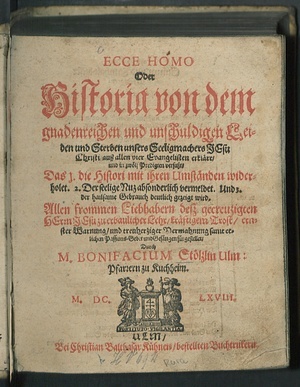 ECCE HOMO
Oder
Historia von dem
gnadenreichen und unschuldigen Lei-
den und Sterben unsers Seeligmachers JEsu
Christi auß allen vier Evangelisten erkläret/
und in zwölf Predigten verfasst
Das 1. die Histori mit ihren Umständen wider-
holet. 2. Der selige Nuz absonderlich vermeldet. Und 3.
der heilsame Gebrauch deutlich gezeigt wird.
Allen frommen Liebhabern deß gecreuzigten
HErrn JEsu zu erbaulicher Lehr/ kräftigem Trost/ ern-
ster Warnung/ und treuherziger Vermahnung samt et-
lichen Passions-Gebet und Gesängen fürgestellet/
Durch
M. BONIFACIUM Stölzlin Ulm:
Pfarrern zu Kuchheim.
M. DC. LXVIII.
ULM/
Bei Christian Balthasar Kühnen/ bestellten Buchtruckern